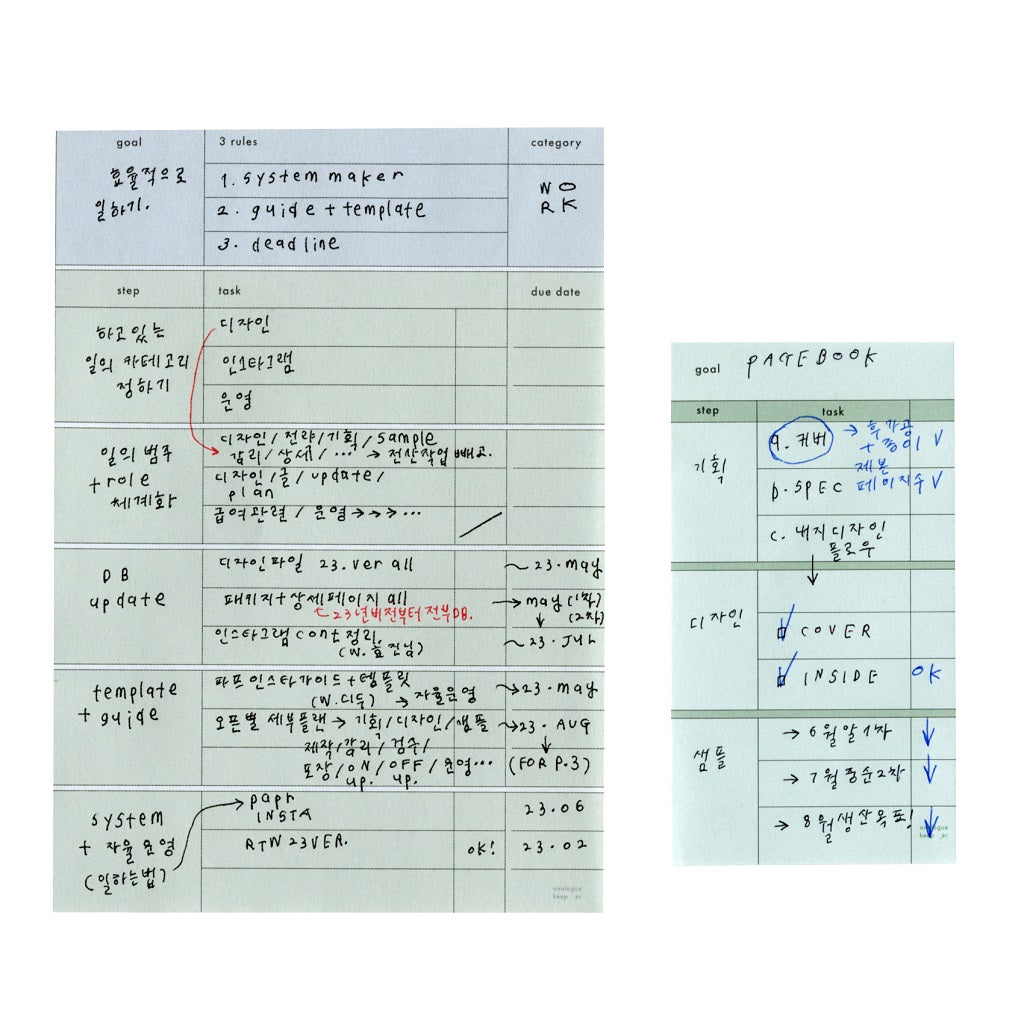 goal
3 rules
category
효율적으로
일하기.
1. system maker
2. guide + template
3. deadline
WO
RK
step
task
due date
하고 있는
일의 카테고리
정하기
디자인
인스타그램
운영
일의 범주
+ role
체계화
디자인/전략/기획/sample
감리/상세/··· → 전산작업 빼고.
디자인/글/update/
plan
급여관련 / 운영→→→···
DB
update
디자인파일 23.ver all
~ 23. may
패키지+상세페이지 all
→ may (1차)
↓ (2차)
← 23년버전부터 전부DB.
인스타그램 cont 정리.
(w. 효진님)
~ 23. JUL
template
+ guide
파프 인스타가이드 + 템플릿
(w. 디두) → 자율운영
→ 23. may
오픈별 세부플랜 → 기획/디자인/샘플
→ 23. AUG
제작/감리/검수/
포장/ON/OFF/운영···
up. up.
(FOR P.3)
system
+ 자율운영
(일하는법)
papr
INSTA
23.06
RTW 23VER.
OK!
23.02
analogue
keep er
goal
PAGEBOOK
step
task
기획
a. 커버
→ 후가공
+ 종이 V
b. SPEC
제본
페이지수 V
c. 내지디자인
플로우
디자인
COVER
INSIDE
OK
샘플
→ 6월말 1차
→ 7월중순 2차
→ 8월생산목표!
analogue
keep er